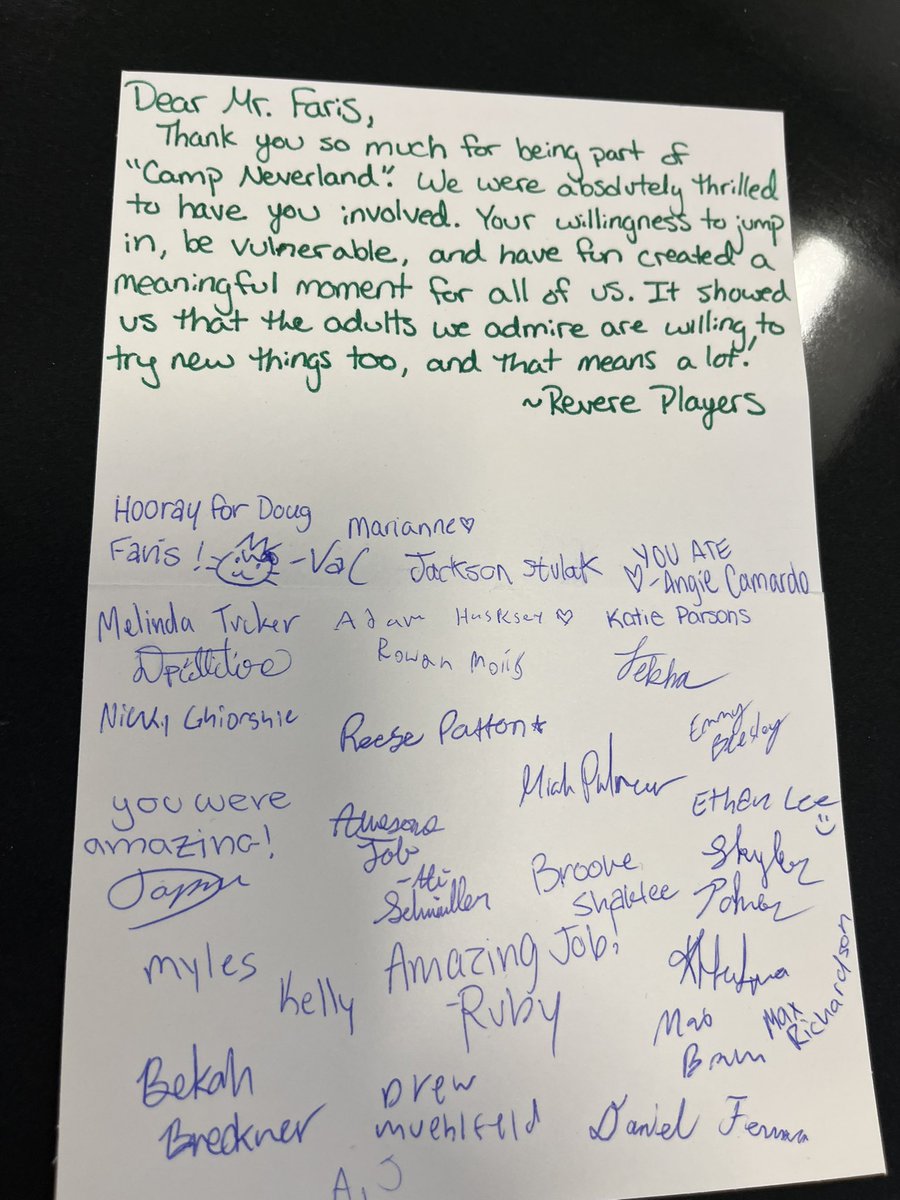 Dear Mr. Faris,
Thank you so much for being part of
"Camp Neverland". We were absolutely thrilled
to have you involved. Your willingness to jump
in, be vulnerable, and have fun created a
meaningful moment for all of us. It showed
us that the adults we admire are willing to
try new things too, and that means a lot!
~Revere Players
Hooray for Doug
Faris! -Val
Marianne♡
Jackson Stulak
YOU ATE
♡-Angie Camardo
Melinda Tucker
Adam ♡
Katie Parsons
Rowan
Nicky
Reese Patton★
Emmy
you were
amazing!
Awesome
Job
Ethan Lee
Skyler
Myles
Kelly
Amazing Job!
-Ruby
Max
Richardson
Bekah
Breckner
Drew
Muehlfeld
Daniel
A.J